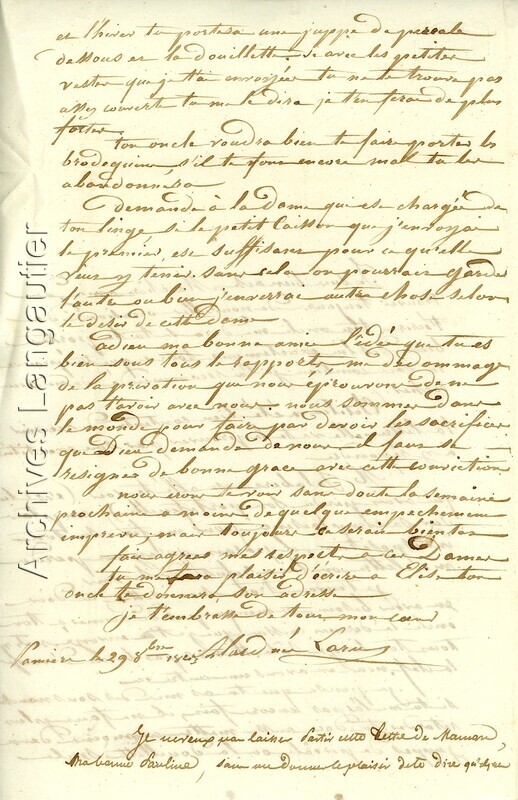 et l'hiver tu portera une juppe de percale
dessous et la douillette avec les petites
vestes que je t'ai envoyées tu ne te trouve pas
assez couverte tu me le dira je t'en ferai de plus
fortes
ton oncle voudra bien te faire porter les
brodequins s'il te font encore mal tu les
abandonnera
demande à la dame qui est chargée de
ton linge si le petit caisson que j'envoyai
le premier est suffisant pour ce qu'elle
veut y tenir sans cela on pourrait garder
l'autre ou bien j'enverrai autre chose selon
le désir de cette dame
adieu ma bonne amie l'idée que tu es
bien sous tous les rapports me dédommage
de la privation que nous éprouvons de ne
pas t'avoir avec nous nous sommes dans
le monde pour faire par devoir les sacrifices
que Dieu demande de nous il faut se
resigner de bonne grace avec cette conviction
nous irons te voir sans doute la semaine
prochaine a moins de quelque empechement
imprevu, mais toujours ce serait bientot
fait agreer mes respects a ces Dames
tu me fera plaisir d'écrire a Elise ton
oncle te donnera son adresse
je t'embrasse de tout mon coeur
le 29 8bre née
Je ne veux pas laisser partir cette lettre de Maman,
Ma bonne Pauline, sans me donner le plaisir de te dire
Archives Langautier